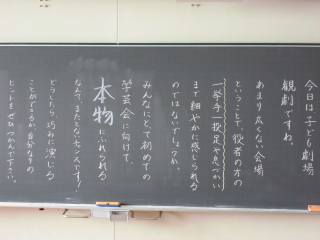 今日は子ども劇場
観劇ですね。
あまり広くない会場
ということで、役者の方の
一挙手一投足や息づかい
まで細やかに感じられる
のではないでしょうか。
みんなにとって初めての
学芸会に向けて、
本物にふれられる
なんて、またとないチャンスです！
どうしたら巧みに演じる
ことができるか、自分なりの
ヒントをぜひつかんで下さい。